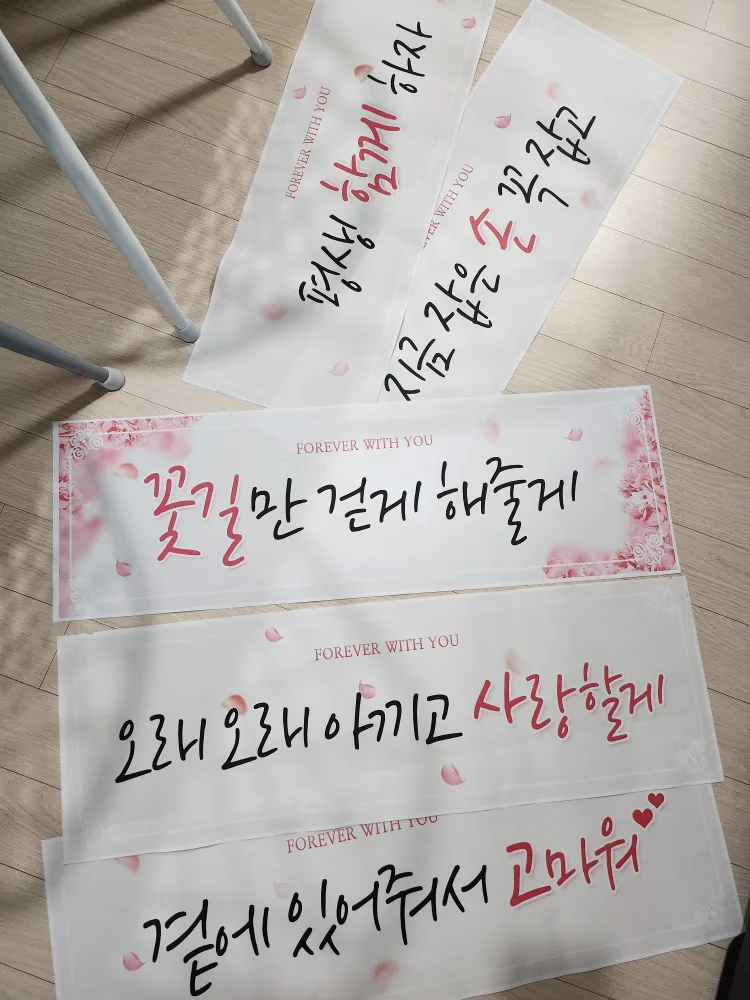 FOREVER WITH YOU
평생 함께 하자
FOREVER WITH YOU
지금 잡은 손 꼭 잡고
FOREVER WITH YOU
꽃길만 걷게 해줄게
FOREVER WITH YOU
오래오래 아끼고 사랑할게
FOREVER WITH YOU
곁에 있어줘서 고마워